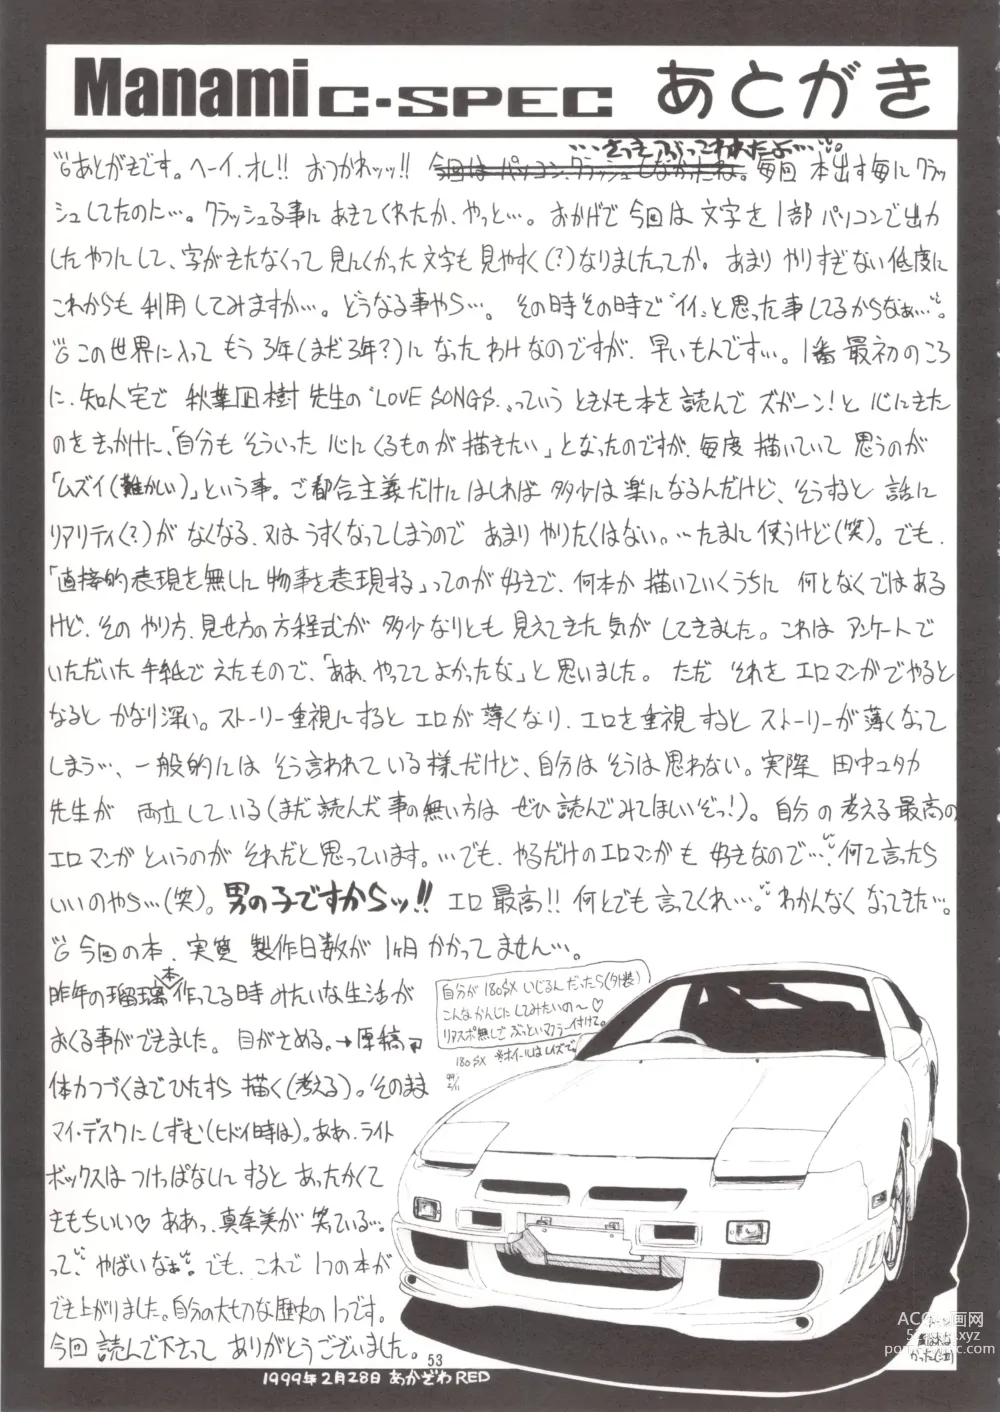 Manami C-SPEC あとがき
…さっきぶってわれたよ…。
あとがきです。ヘーイ、オレ!! おつかれッッ!! 今回はパソコン、クラッシュしなかったね。毎回 本出す毎にクラッ
シュしてたのに…。クラッシュする事に あきてくれたか、やっと…。おかげで 今回は 文字を 1部 パソコンで出力
したやつにして、字がきたなくって 見にくかった文字も 見やすく(?)なりましたってか。あまり やりすぎない低度に
これからも 利用してみますか…。どうなる事やら…。その時その時で“イイ”と思った事してるからなぁ…。
この世界に入って もう 3年(まだ3年?)に なったわけなのですが、早いもんです…。1番 最初のころ
に、知人宅で 秋葉凪樹 先生の “LOVE SONGS”っていう ときメモ本を 読んで ズガーン!と 心にきた
のをきっかけに、「自分も そういった 心にくるものが 描きたい」となったのですが、毎度 描いていて 思うのが
「ムズイ(難かしい)」という事。ご都合主義だけに はしれば 多少は 楽になるんだけど、そうすると 話に
リアリティ(?)が なくなる、又は うすくなってしまうので あまり やりたくはない。…たまに使うけど(笑)。でも、
「直接的表現を無しに 物事を表現する」ってのが 好きで、何本か 描いていくうちに 何となくではある
けど、その やり方、見せ方の方程式が 多少なりとも 見えてきた気が してきました。これは アンケートで
いただいた 手紙で えたもので、「ああ、やってて よかったな」と 思いました。ただ それを エロマンガでやると
なると かなり深い。ストーリー重視にすると エロが 薄くなり、エロを重視すると ストーリーが 薄くなって
しまう…、一般的には そう言われている 様だけど、自分は そうは思わない。実際 田中ユタカ
先生が 両立している(まだ読んだ事の無い方は ぜひ読んでみてほしいぞっ!)。自分の考える最高の
エロマンガというのが それだと思っています。…でも、やるだけのエロマンガも 好きなので…、何て言ったら
いいのやら…(笑)。男の子ですからッ!! エロ 最高!! 何とでも言ってくれ…。わかんなく なってきた…。
今回の本、実質 製作日数が 1ヶ月 かかってません…。
昨年の瑠璃本作ってる時 みたいな生活が
おくる事ができました。目がさめる。→原稿→
体力つづくまでひたすら 描く(考える)。そのまま
マイ・デスクに しずむ(ヒドイ時は)。ああ、ライト
ボックスは つけっぱなしにすると あったかくて
きもちいい♡ ああっ、真奈美が 笑ている…。
って、やばいなぁ。でも、これで 1つの本が
でき上がりました。自分の大切な歴史の1つです。
今回 読んで下さって ありがとうございました。
自分が 180SX いじるんだったら(外装)
こんなかんじに してみたいの〜♡
リアスポ無しで ぶっといマフラー付けて。
180SX ※ホイールは レイズで。
99
2/11
53
1999年2月28日 あかざわRED